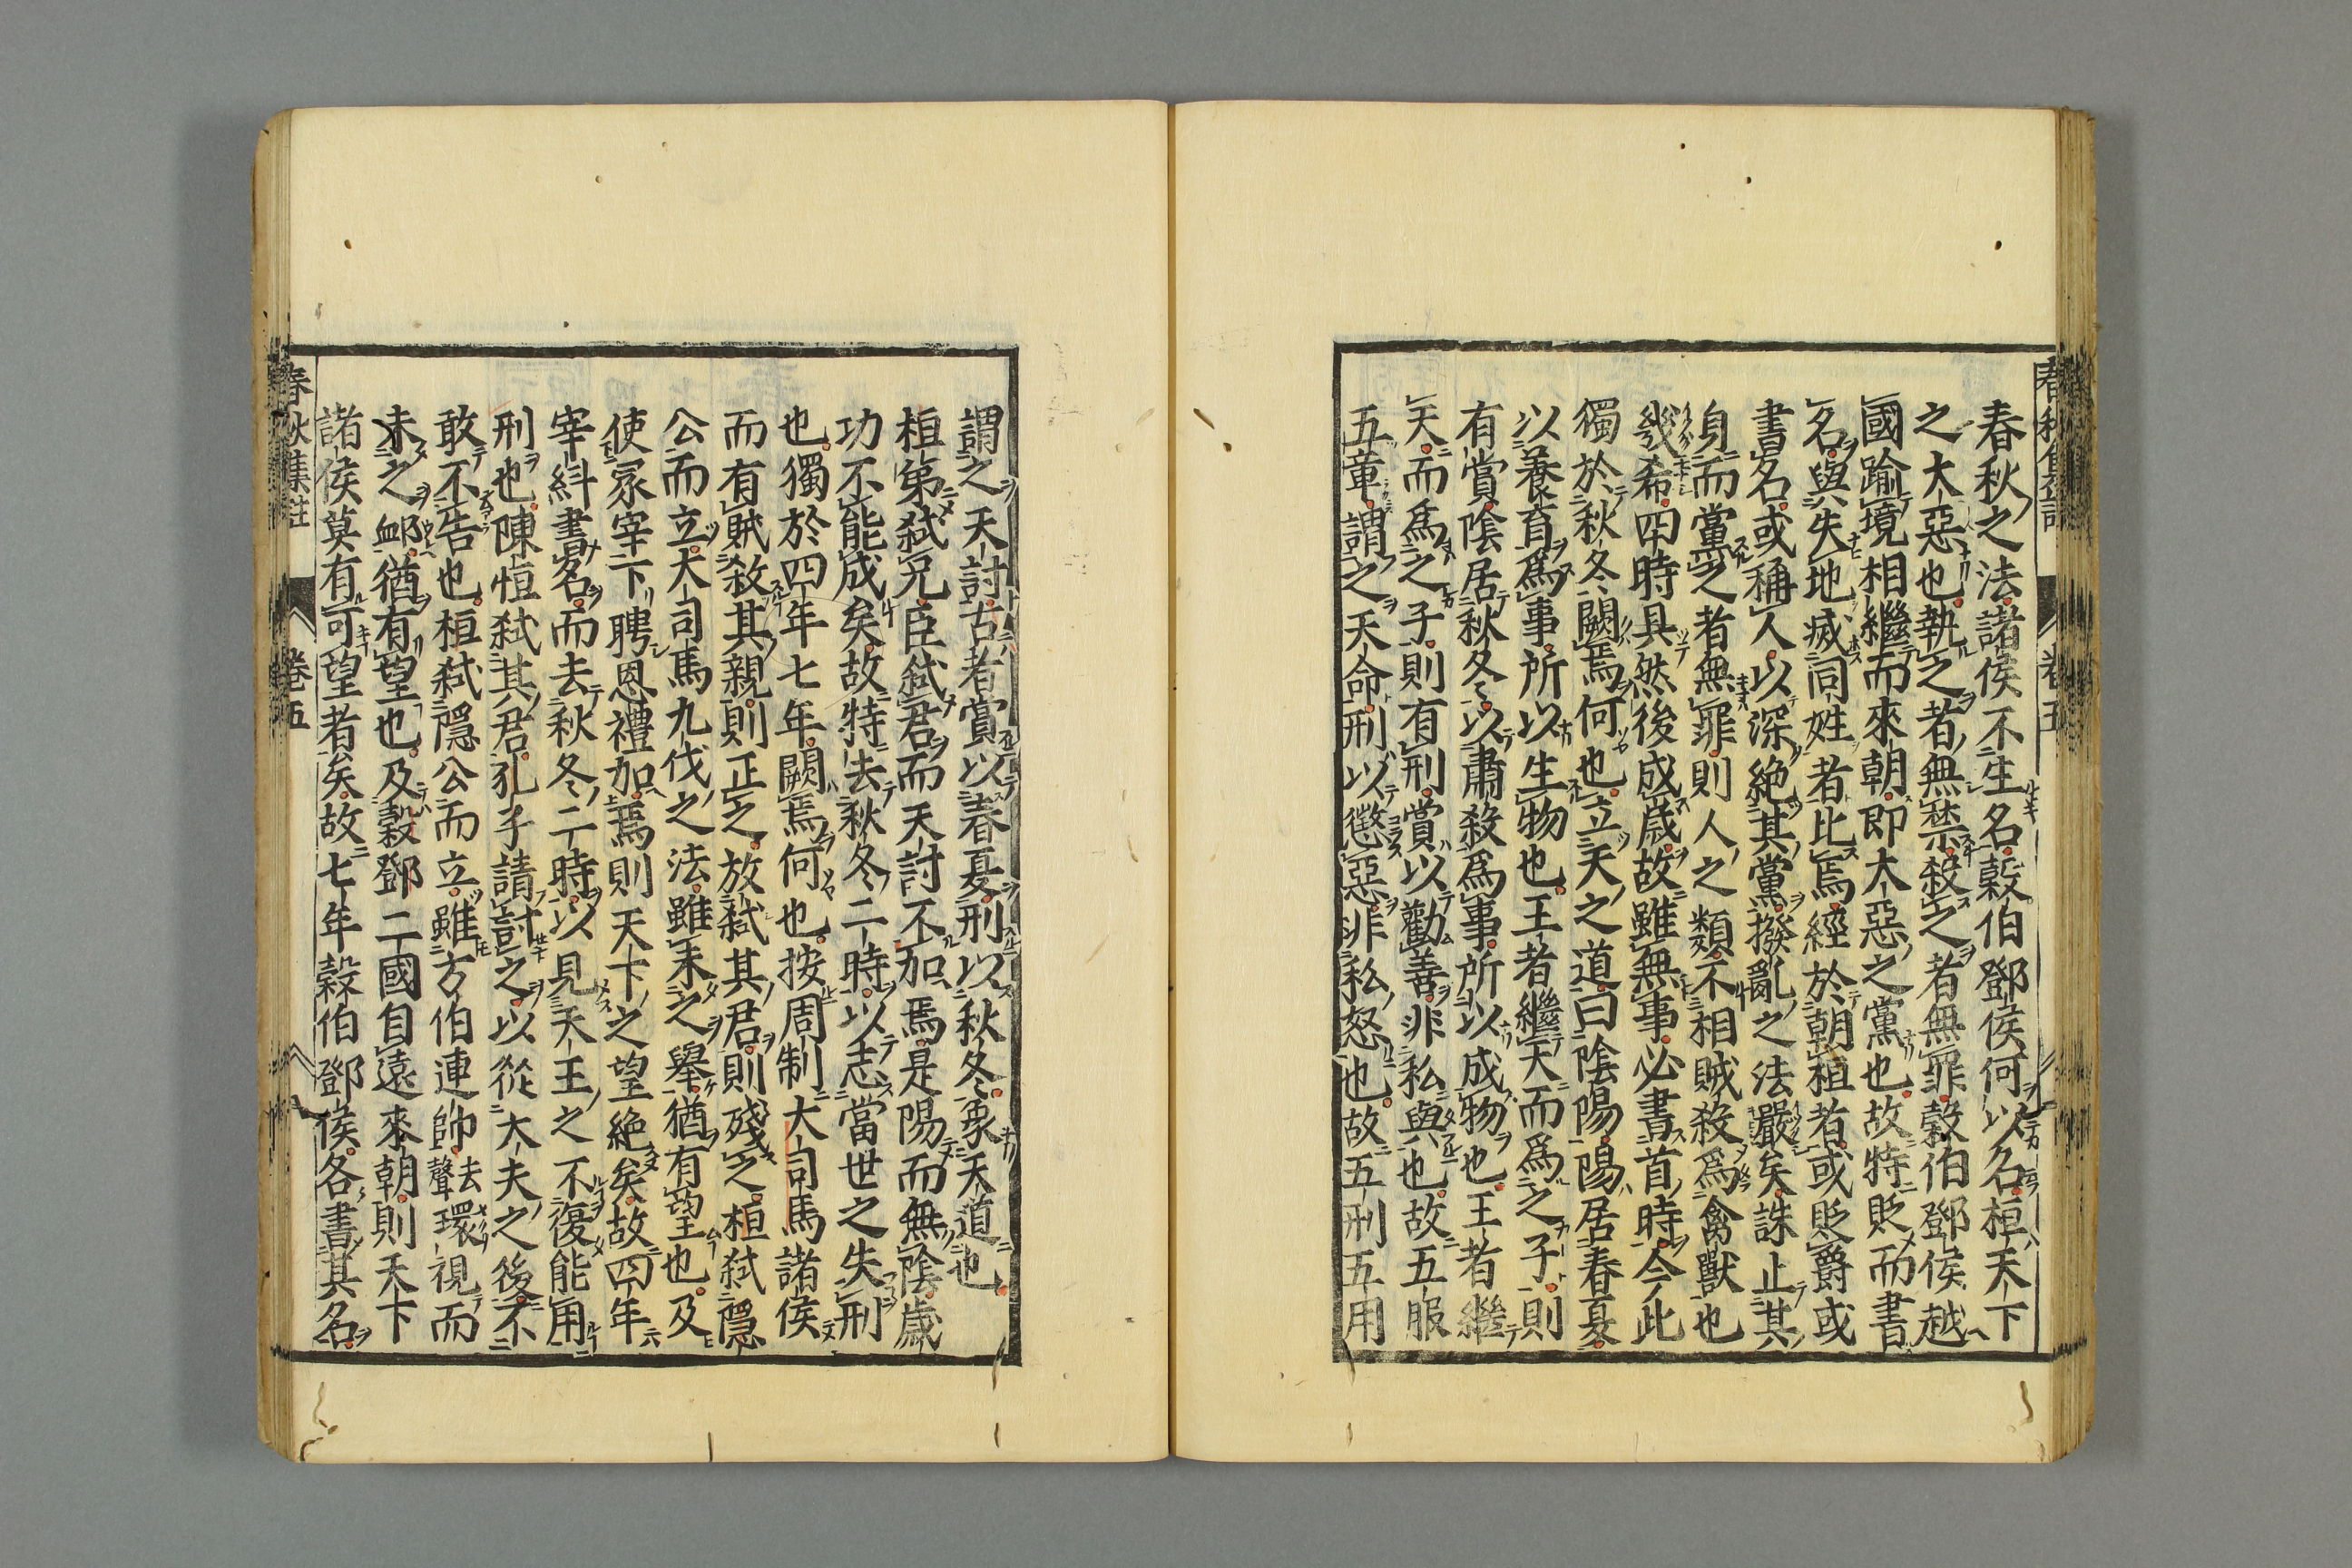 春秋之法諸侯不生名穀伯鄧侯何以名桓天下
之大惡也執之者無禁殺之者無罪穀伯鄧侯越
國踰境相繼而來朝即大惡之黨也故特貶而書
名與失地滅同姓者比焉經於朝桓者或貶爵或
書名或稱人以深絶其黨撥亂之法嚴矣誅止其
身而黨之者無罪則人之類不相賊殺爲禽獸也
幾希四時具然後成歳故雖無事必書首時今此
獨於秋冬闕焉何也立天之道曰陰陽陽居春夏
以養育爲事所以生物也王者繼天而爲之子則
有賞陰居秋冬以肅殺爲事所以成物也王者繼
天而爲之子則有刑賞以勸善非私與也故五服
五章謂之天命刑以懲惡非私怒也故五刑五用
謂之天討古者賞以春夏刑以秋冬象天道也
桓弟弑兄臣弑君而天討不加焉是陽而無陰歳
功不能成矣故特去秋冬二時以志當世之失刑
也獨於四年七年闕焉何也按周制大司馬諸侯
而有賊殺其親則正之放弑其君則殘之桓弑隱
公而立大司馬九伐之法雖未之舉猶有望也及
使冢宰下聘恩禮加焉則天下之望絶矣故四年
宰糾書名而去秋冬二時以見天王之不復能用
刑也陳恒弑其君孔子請討之以從大夫之後不
敢不告也桓弑隱公而立雖方伯連帥聲去環視而
未之卹猶有望也及穀鄧二國自遠來朝則天下
諸侯莫有可望者矣故七年穀伯鄧侯各書其名
春秋集註
卷五